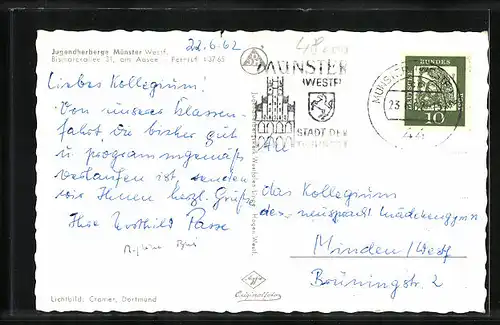 Jugendherberge Münster Westf.
Bismarckallee 31, am Aasee Fernruf 43765
22.6.62
Liebes Kollegium!
Von unserer Klassen-
fahrt, die bisher gut
u. programmgemäß
verlaufen ist, senden
wir Ihnen herzl. Grüße
Ihre
MÜNSTER
(WESTF)
STADT DER
DEUTSCHE
BUNDESPOST
10
An
das Kollegium
des neusprachl. Mädchengymn.
Minden/Westf
Brüningstr. 2
Agfa
Originalfoto
Lichtbild: Cramer, Dortmund